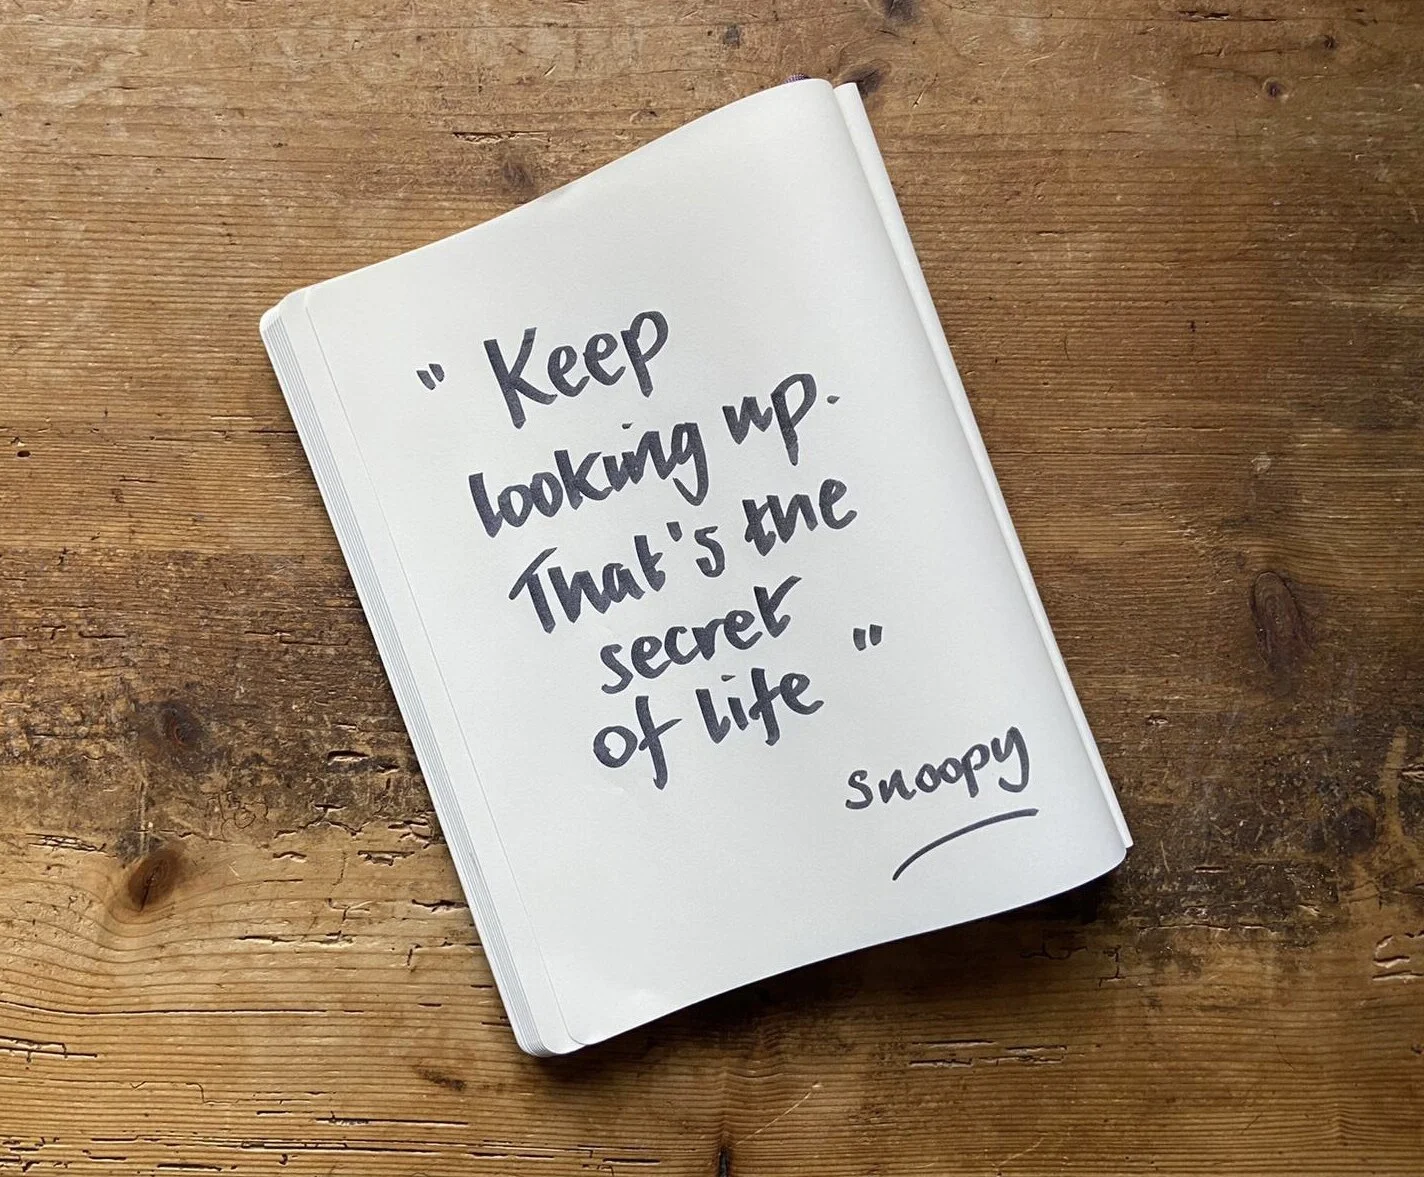 " Keep
looking up.
That's the
secret
of life "
Snoopy